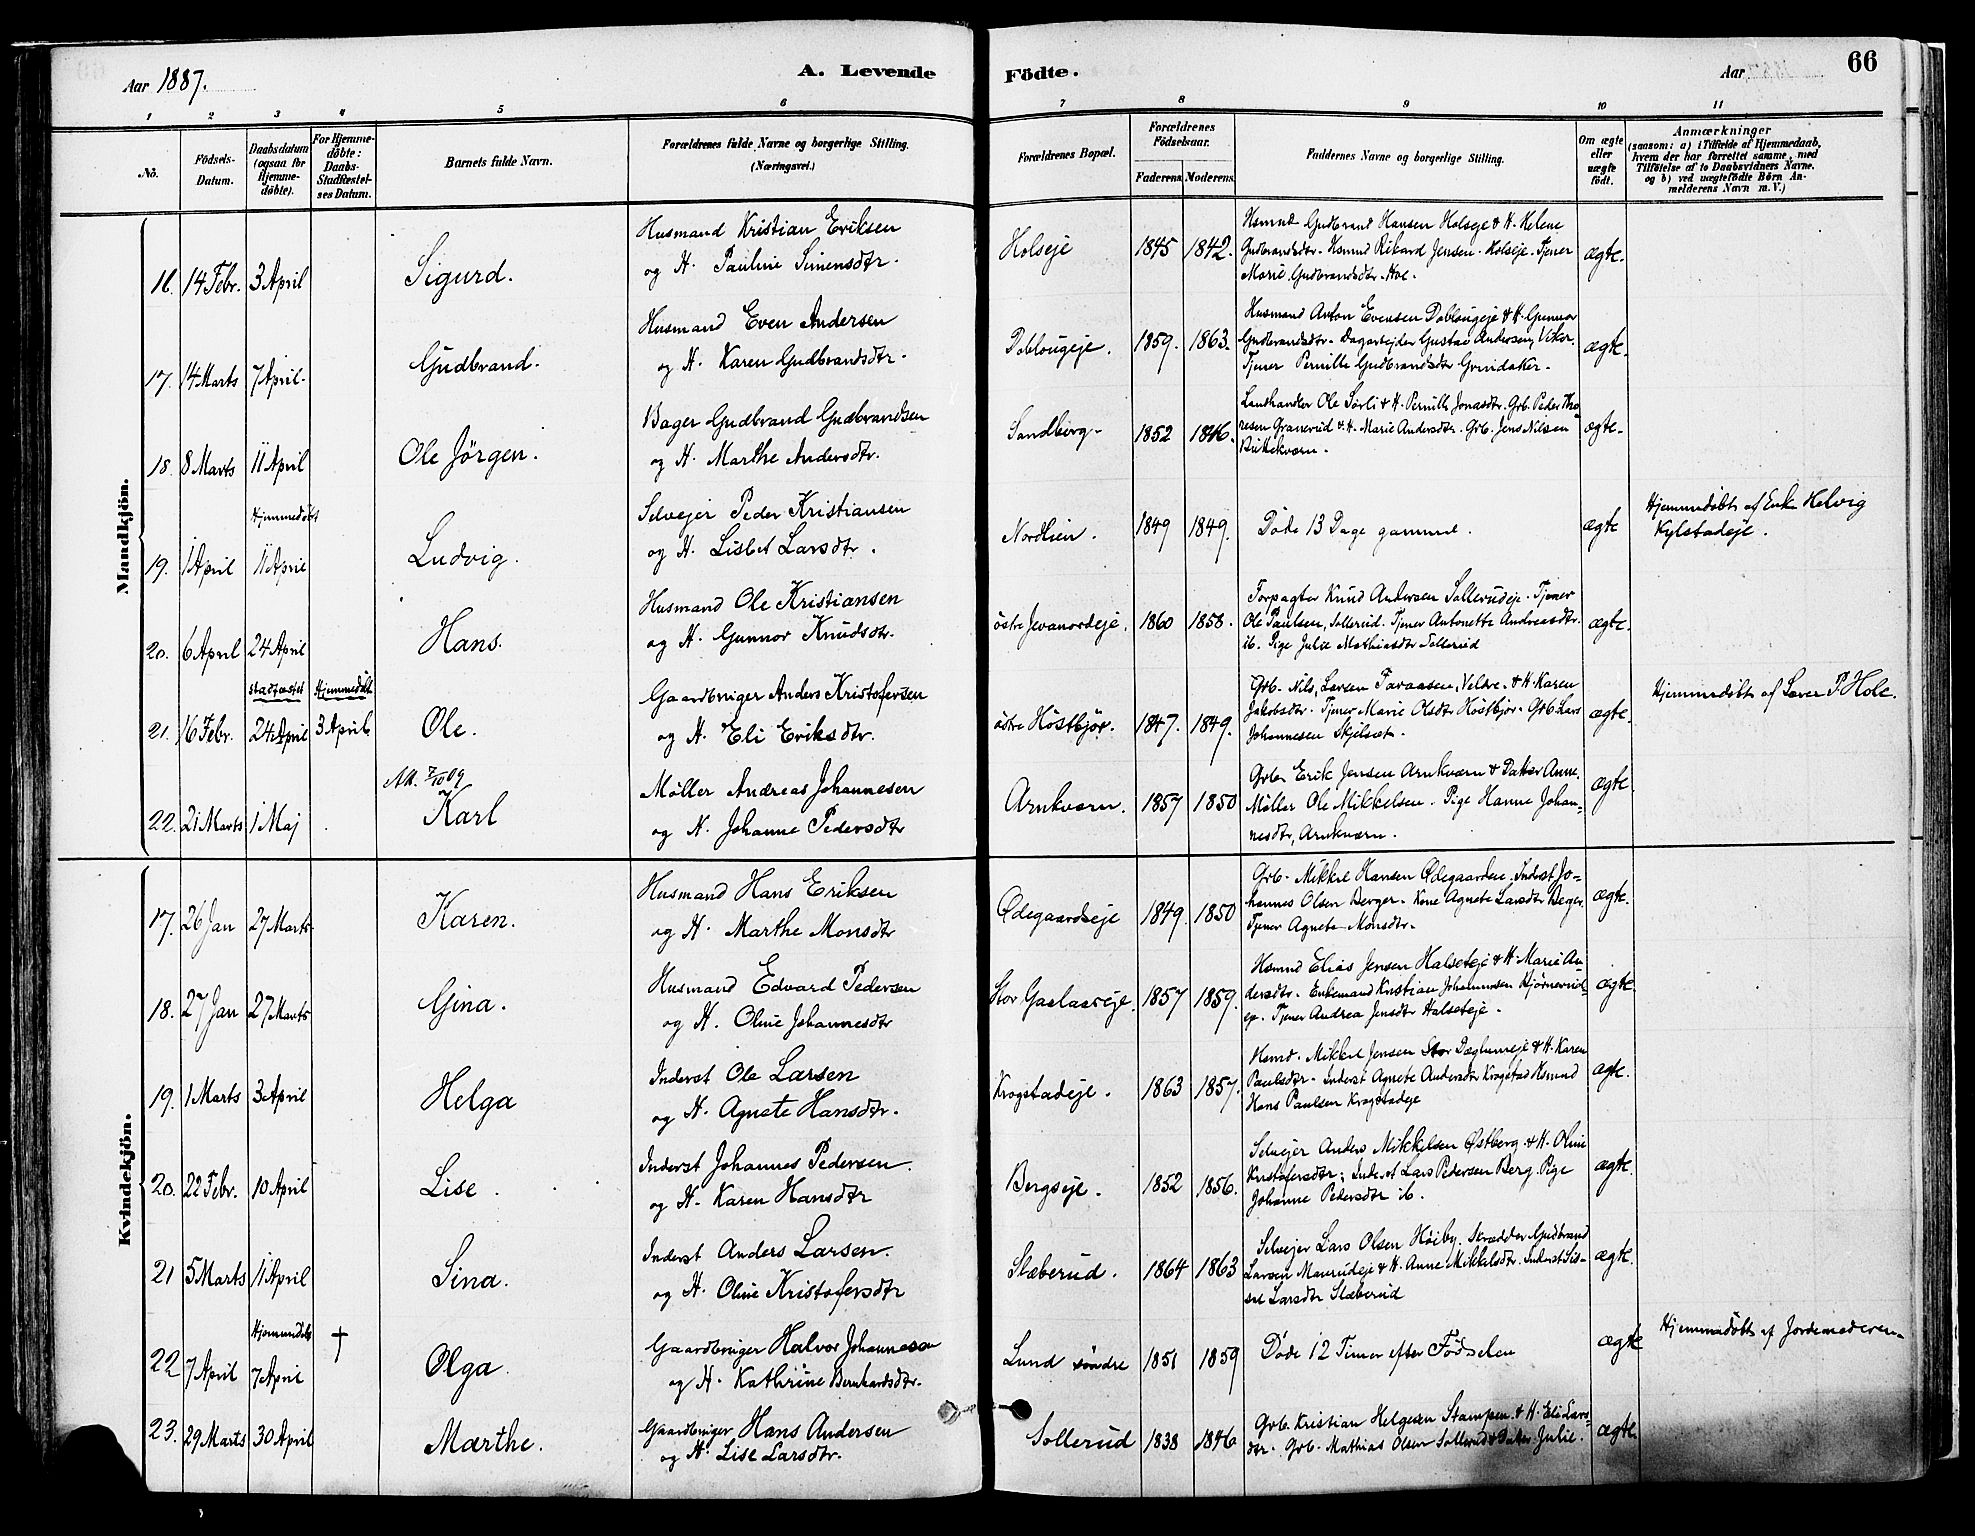 Aar 1887.
A. Levende
Födte.
Aar
66
1 2 3 4 5 6 7 8 9 10 11
No.
Födsels-Datum.
Daabsdatum (ogsaa for Hjemme-döbte).
For Hjemme-döbte: Daabs-Stadfæstel-ses Datum.
Barnets fulde Navn.
Forældrenes fulde Navne og borgerlige Stilling. (Næringsvei.)
Forældrenes Bopæl.
Forældrenes Födselsaar.
Faderens. Moderens.
Faddernes Navne og borgerlige Stilling.
Om ægte eller uægte födt.
Anmærkninger
(saasom: a) i Tilfælde af Hjemmedaab,
hvem der har forrettet samme, med
Tilföielse af to Daabsvidners Navne.
og b) ved uægtefödte Börn An-
melderens Navn m. V.)
Mandkjön.
16. 14 Febr. 3 April Sigurd. Husmand Kristian Eriksen
og H. Pauline Simensdtr.
Holseje 1845 1842. Hsmnd Gudbrand Hansen Holseje & H. Helene
Gudbrandsdtr. Hsmnd Rikard Jensen Holseje. Tjener
Marie Gudbrandsdtr. Hoe.
ægte.
17. 14 Marts 7 April. Gudbrand. Husmand Even Andersen
og H. Karen Gudbrandsdtr.
Doblougeje. 1859. 1863. Husmand Anton Evensen Doblougeje & H. Gunnor
Gudbrandsdtr. Dagarbejder Gustav Andersen, Vikor.
Tjener Pernille Gudbrandsdtr Grindaker.
ægte.
18. 8 Marts 11 April Ole Jörgen. Bager Gudbrand Gudbrandsen
og H. Marthe Andersdtr.
Sandberg. 1852 1846. Landhandler Ole Sörli & H. Pernille Jonasdtr. Grb. Peder Tho-
resen Granerud & H. Marie Andersdtr. Grb. Jens Nilsen
Bukkekværn.
ægte.
Hjemmedöbt
19. 1 April 11 April Ludvig. Selvejer Peder Kristiansen
og H. Lisbet Larsdtr.
Nordlien. 1849 1849. Döde 13 Dage gammel.
ægte
Hjemmedöbt af Enke Helvig
Kylstadeje.
20. 6 April 24 April Hans. Husmand Ole Kristiansen
og H. Gunnor Knudsdtr.
östre Jevanordeje. 1860 1858. Forpagter Knud Andersen Sollerudeje. Tjener
Ole Paulsen, Sollerud. Tjener Antonette Andreasdtr.
ib. Pige Julie Mathiasdtr Sollerud
ægte.
stadfæstet Hjemmedöbt
21. 16 Febr. 24 April 3 April Ole. Gaardbruger Anders Kristofersen
og H. Eli Eriksdtr.
östre Höstbjör. 1847. 1849. Grb. Nils Larsen Faraasen, Veldre. & H. Karen
Jakobsdtr. Tjener Marie Olsdtr Höstbjör. Grb Lars
Johannesen Skjelset.
ægte.
Hjemmedöbt af Lærer P. Hole.
Att. 7/10 09
22. 21 Marts 1 Maj Karl Möller Andreas Johannesen
og H. Johanne Pedersdtr
Arnkværn. 1857 1850 Grb. Erik Jensen Arnkværn & Datter Anne.
Möller Ole Mikkelsen. Pige Hanne Johan-
nesdtr, Arnkværn.
ægte.
Kvindekjön.
17. 26 Jan 27 Marts Karen. Husmand Hans Eriksen
og H. Marthe Monsdtr
Ødegaardseje 1849. 1850 Grb. Mikkel Hansen Ødegaarden. Inderst Jo-
hannes Olsen Berger. Kone Agnete Larsdtr Berger.
Tjener Agnete Monsdtr.
ægte.
18. 27 Jan 27 Marts Gina. Husmand Edvard Pedersen
og H. Oline Johannesdtr
Stor Gaalaaseje. 1857 1859. Hsmnd Elias Jensen Halseteje & H. Marie An-
dersdtr. Enkemand Kristian Johannesen Kjörnerud-
ej. Tjener Andrea Jensdtr Halseteje.
ægte.
19. 1 Marts 3 April Helga Inderst Ole Larsen
og H. Agnete Hansdtr.
Krogstadeje. 1863 1857. Hsmd. Mikkel Jensen Stor Dæglumeje & H. Karen
Paulsdtr. Inderst Agnete Andersdtr Krogstad Hsmnd
Hans Paulsen Krogstadeje
ægte.
20. 22 Febr. 10 April Lise. Inderst Johannes Pedersen.
og H. Karen Hansdtr
Bergseje. 1852 1856. Selvejer Anders Mikkelsen Østberg & H. Oline
Kristofersdtr; Inderst Lars Pedersen Berg. Pige
Johanne Pedersdtr ib.
ægte.
21 5 Marts 11 April Sina. Inderst Anders Larsen.
og H. Oline Kristofersdtr
Slæberud. 1864 1863 Selvejer Lars Olsen Höiby. Skrædder Gudbrand
Larsen Maurudeje & H. Anne Mikkelsdtr. Inderst Sis-
sel Larsdtr Slæberud
ægte.
Hjemmedöbt †
22 7 April 7 April Olga. Gaardbruger Halvor Johannesen
og H. Kathrine Bernhardsdtr.
Lund söndre 1851 1859 Döde 12 Timer efter Födselen
ægte
Hjemmedöbt af Jordemoderen
23. 29 Marts 30 April Marthe. Gaardbruger Hans Andersen
og H. Lise Larsdtr.
Sollerud 1838 1846 Grb. Kristian Helgesen Stampen & H. Eli Lars-
dtr. Grb. Mathias Olsen Sollerud & Datter Julie.
ægte.